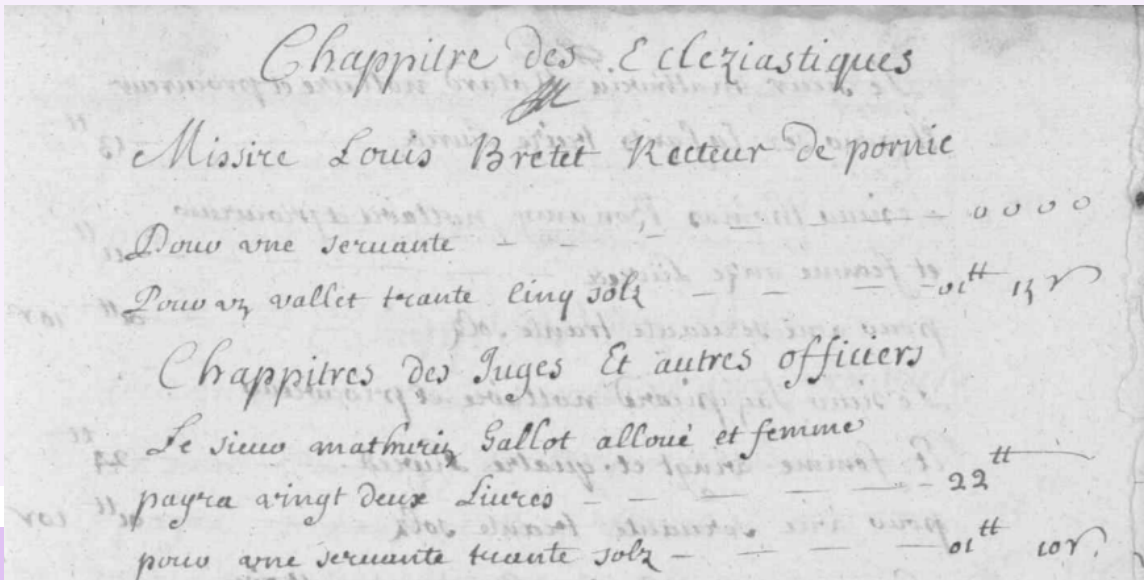 Chappitre des Ecleziastiques
Missire Louis Bretet Recteur de pornic
0 0 0 0
Pour une servante
Pour un vallet trante cinq solz 01tt 15 s
Chappitres des Juges Et autres officiers
Le sieur mathurin Gallot alloué et femme
payra vingt deux Livres 22tt
pour une servante trante solz 01tt 10 s